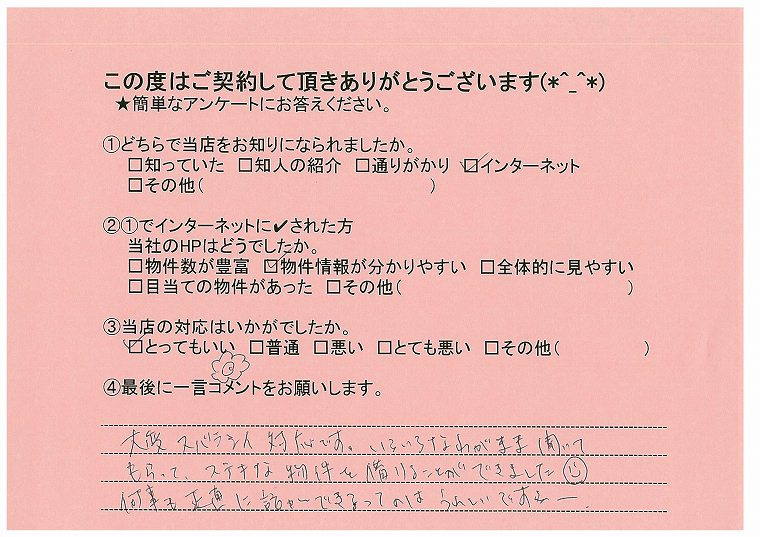 この度はご契約して頂きありがとうございます(*^_^*)
★簡単なアンケートにお答えください。
①どちらで当店をお知りになられましたか。
□知っていた □知人の紹介 □通りがかり ☑インターネット
□その他( )
②①でインターネットに✔された方
当社のHPはどうでしたか。
□物件数が豊富 ☑物件情報が分かりやすい □全体的に見やすい
□目当ての物件があった □その他( )
③当店の対応はいかがでしたか。
☑とってもいい □普通 □悪い □とても悪い □その他( )
④最後に一言コメントをお願いします。
大変 スバラシイ 対応です。いろいろなわがまま 聞いて
もらって、ステキな 物件を 借りることができました
何事も 正直に 話が できるってのは うれしいですネー